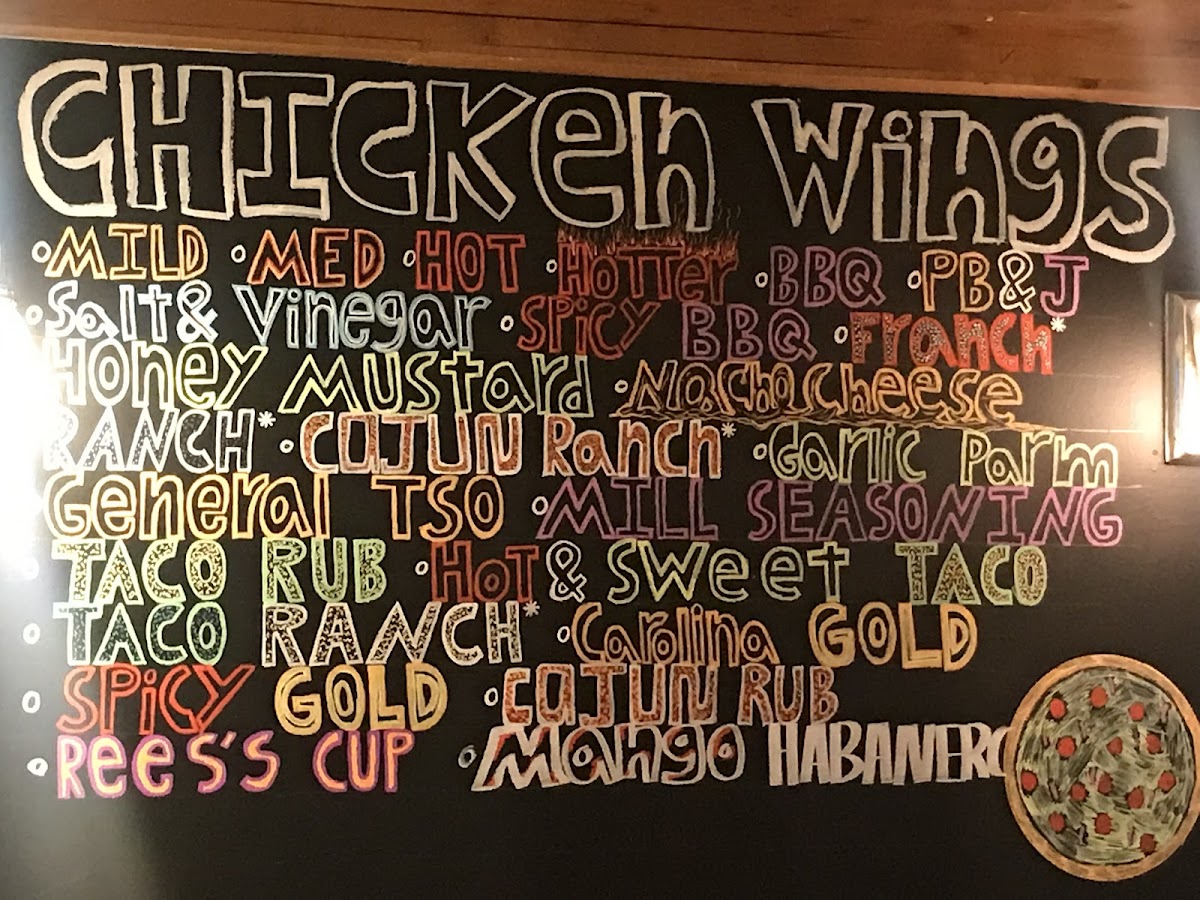 CHICKen Wings
•MILD •MED •HOT •HOTTer •BBQ •PB&J
•Salt& Vinegar •SPiCY BBQ •Franch*
HOney MUStard •NAChO Cheese
RANCH* •CAJUN Ranch* •Garlic Parm
General TSO •MILL SEASONING
•TACO RUB •HOT & SWeet TACO
•TACO RANCH* •Carolina GOLD
•SPiCY GOLD •CAJUN RUB
•Rees's CUP •Mango HABANERO